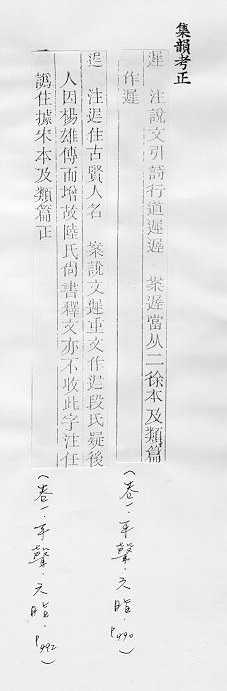 集韻考正
遲 注說文引詩行道遲遲 案遲當从二徐本及類篇
作遲
迟 注迟住古賢人名 案說文遲重文作迟段氏疑後
人因楊雄傳而增故陸氏尙書釋文亦不收此字注任
譌住據宋本及類篇正
(卷一.平聲.六脂.P990)
(卷一.平聲.六脂.P992)